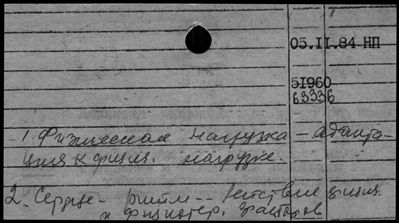 05.II.84 НП
51960
63336
1. Физическая нагрузка – адапта-
ция к физич. нагрузке.
2. Сердце – ритм -- действие физич.
и физиотер. факторов